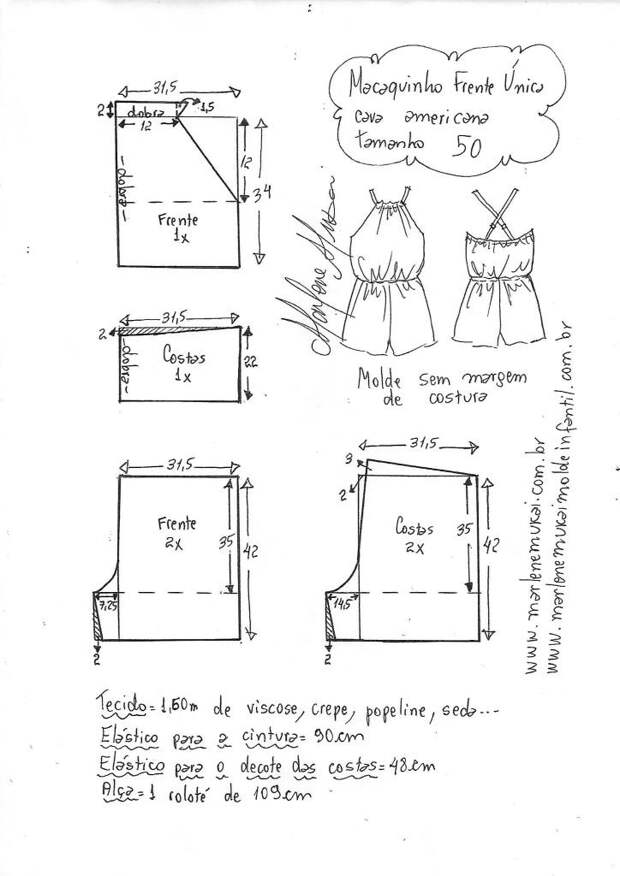 Macaquinho Frente Única
cava americana
tamanho 50
31,5
2
dobra
1,5
12
12
34
dobra
Frente
1x
Marlene Mukai
31,5
2
dobra
Costas
1x
22
Molde sem margem
de costura
www.marlenemukai.com.br
www.marlenemukaimoldeinfantil.com.br
31,5
Frente
2x
35
42
7,25
2
31,5
3
2
Costas
2x
35
42
14,5
2
Tecido=1,50m de viscose, crepe, popeline, seda...
Elástico para a cintura=90cm
Elástico para o decote das costas=48cm
Alça=1 roloté de 109cm